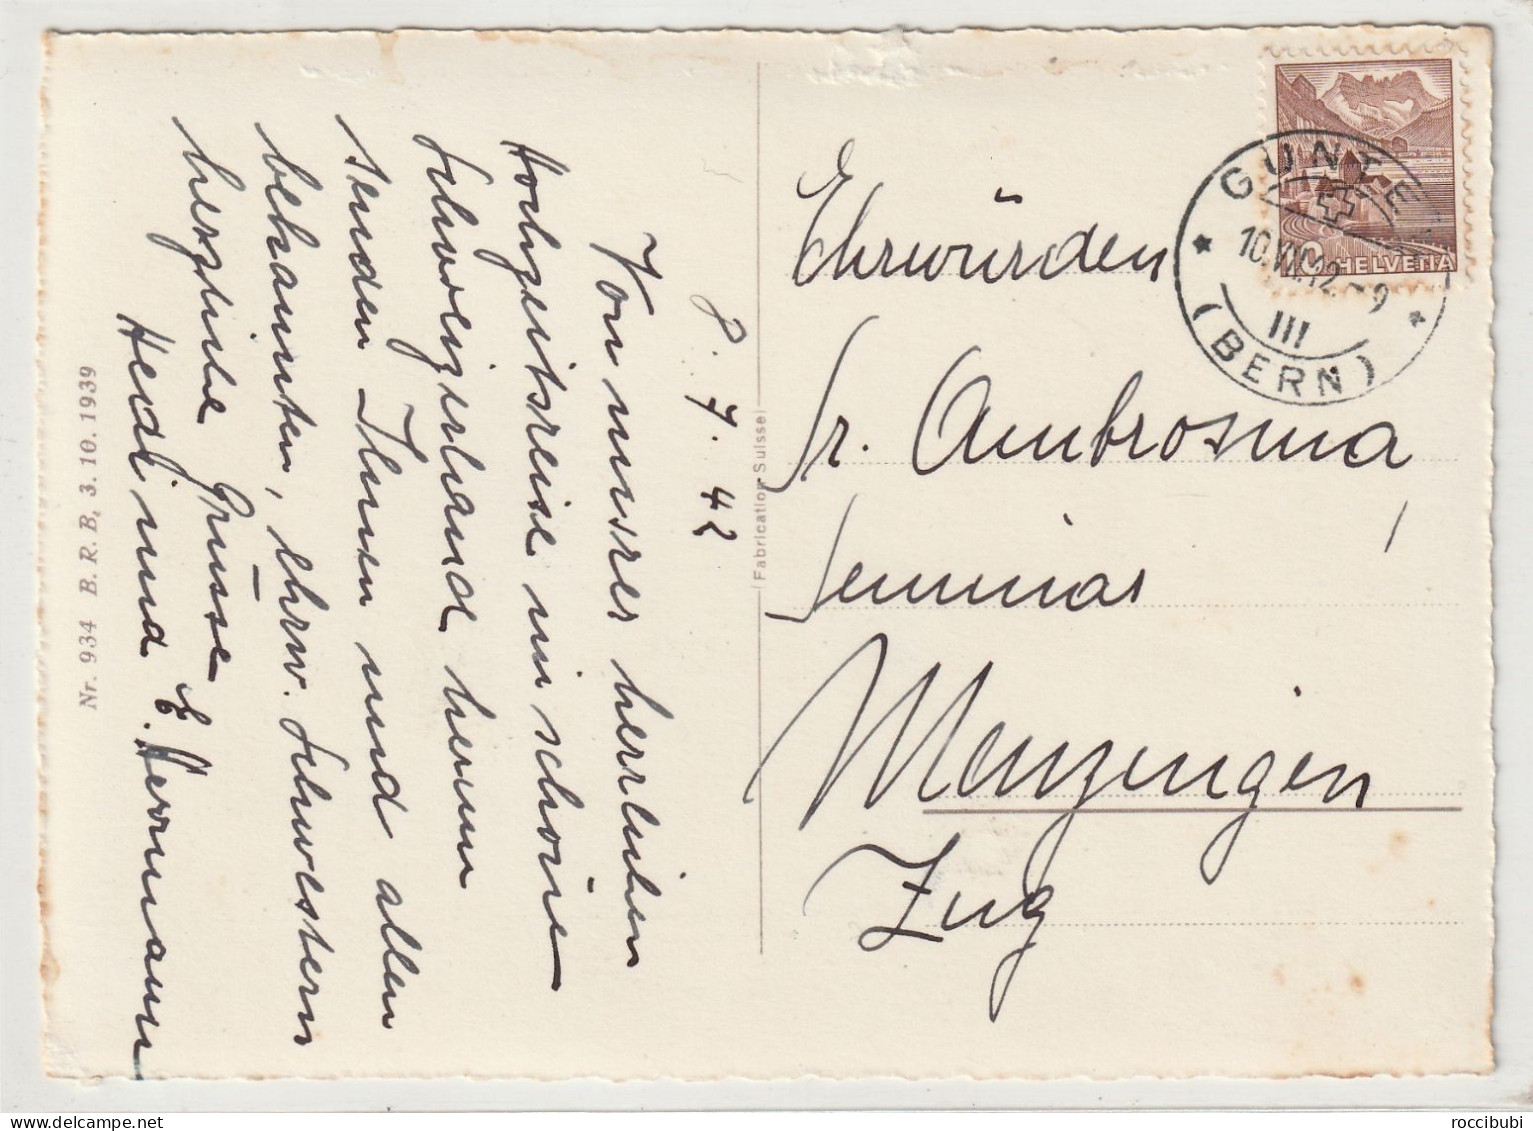 8. 7. 42
Von unsrer herrlichen
Hochzeitsreise in schöne
Schweizerland herum
senden Ihnen und allen
bekannten, Ehrw. Schwestern
herzliche Grüsse
Heidi und E. Herrmann
Nr. 934 B. R. B. 3. 10. 1939
(Fabrication Suisse)
Ehrwürden
Sr. Ambrosina
Seminar
Menzingen
Zug
GUNTE
10.VII.42-9
III
(BERN)
10 HELVETIA
roccibubi